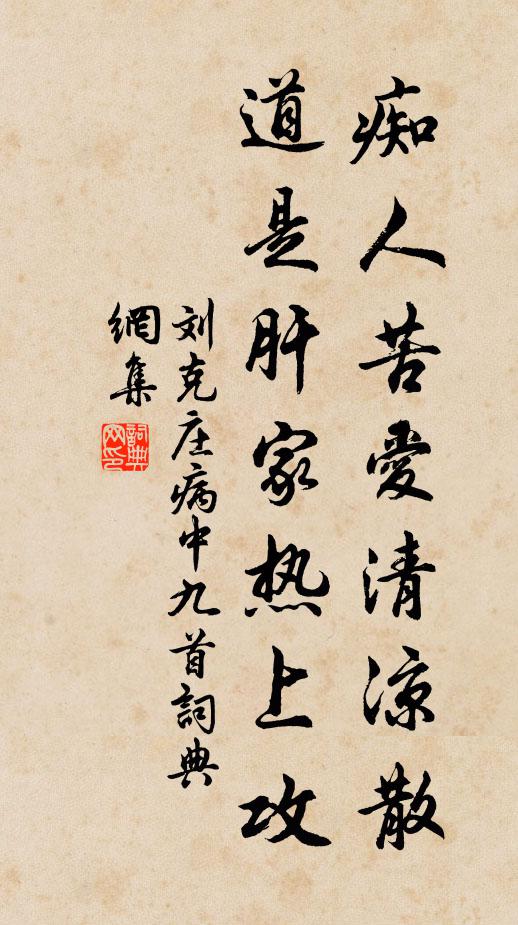 痴人苦愛清凉散
道是肝家热上攻
刘克庄病中九首詞典
網集
詞典
网印